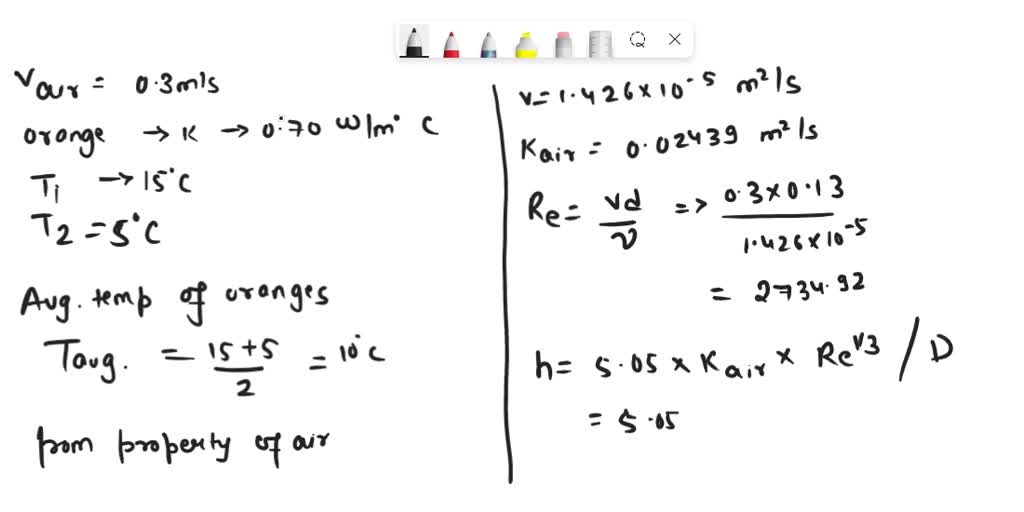 Vair = 0.3m/s
orange → K → 0.70 W/m° C
T1 → 15°C
T2 = 5°C
Avg. temp of oranges
Tavg. = 15+5/2 = 10°C
from property of air
ν = 1.426×10-5 m²/s
Kair = 0.02439 m²/s
Re = Vd/ν => 0.3×0.13/1.426×10-5
= 2734.92
h = 5.05 × Kair × Re1/3 / D
= 5.05